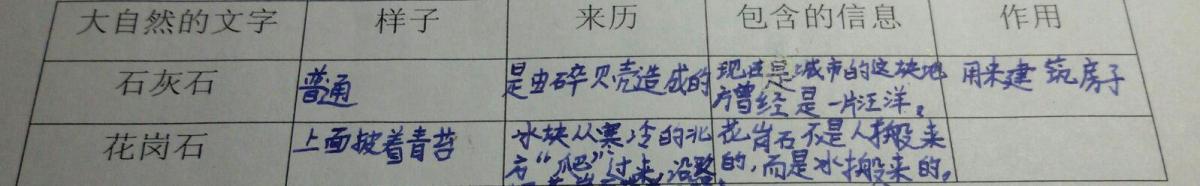 大自然的文字 样子 来历 包含的信息 作用
石灰石 普通 是由碎贝壳造成的 现在是城市的这块地方曾经是一片汪洋。 用来建筑房子
花岗石 上面披着青苔 冰块从寒冷的北方“爬”过来,沿路 花岗石不是人搬来的,而是冰搬来的。